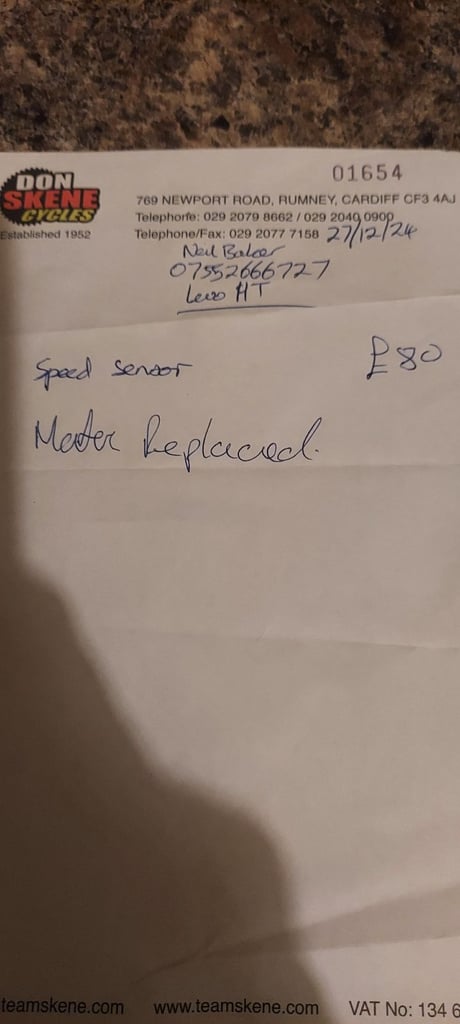 01654
DON
SKENE
CYCLES
Established 1952
769 NEWPORT ROAD, RUMNEY, CARDIFF CF3 4AJ
Telephone: 029 2079 8662 / 029 2040 0900
Telephone/Fax: 029 2077 7158 27/12/24
Neil Baker
07552666727
Levo HT
Speed sensor £80
Motor Replaced.
teamskene.com www.teamskene.com VAT No: 134 6